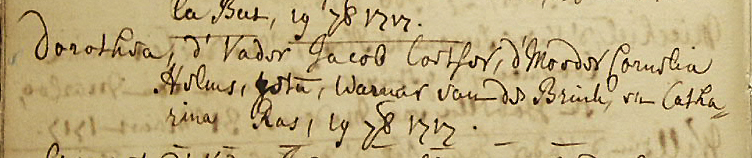 la Bat, 19 7b 1717.
Dorothea, d' Vader Jacob Coetser, d' Moeder Cornelia
Helms, getu, Warnar van den Brink, en Catha„
rina Ras, 19 7b 1717.